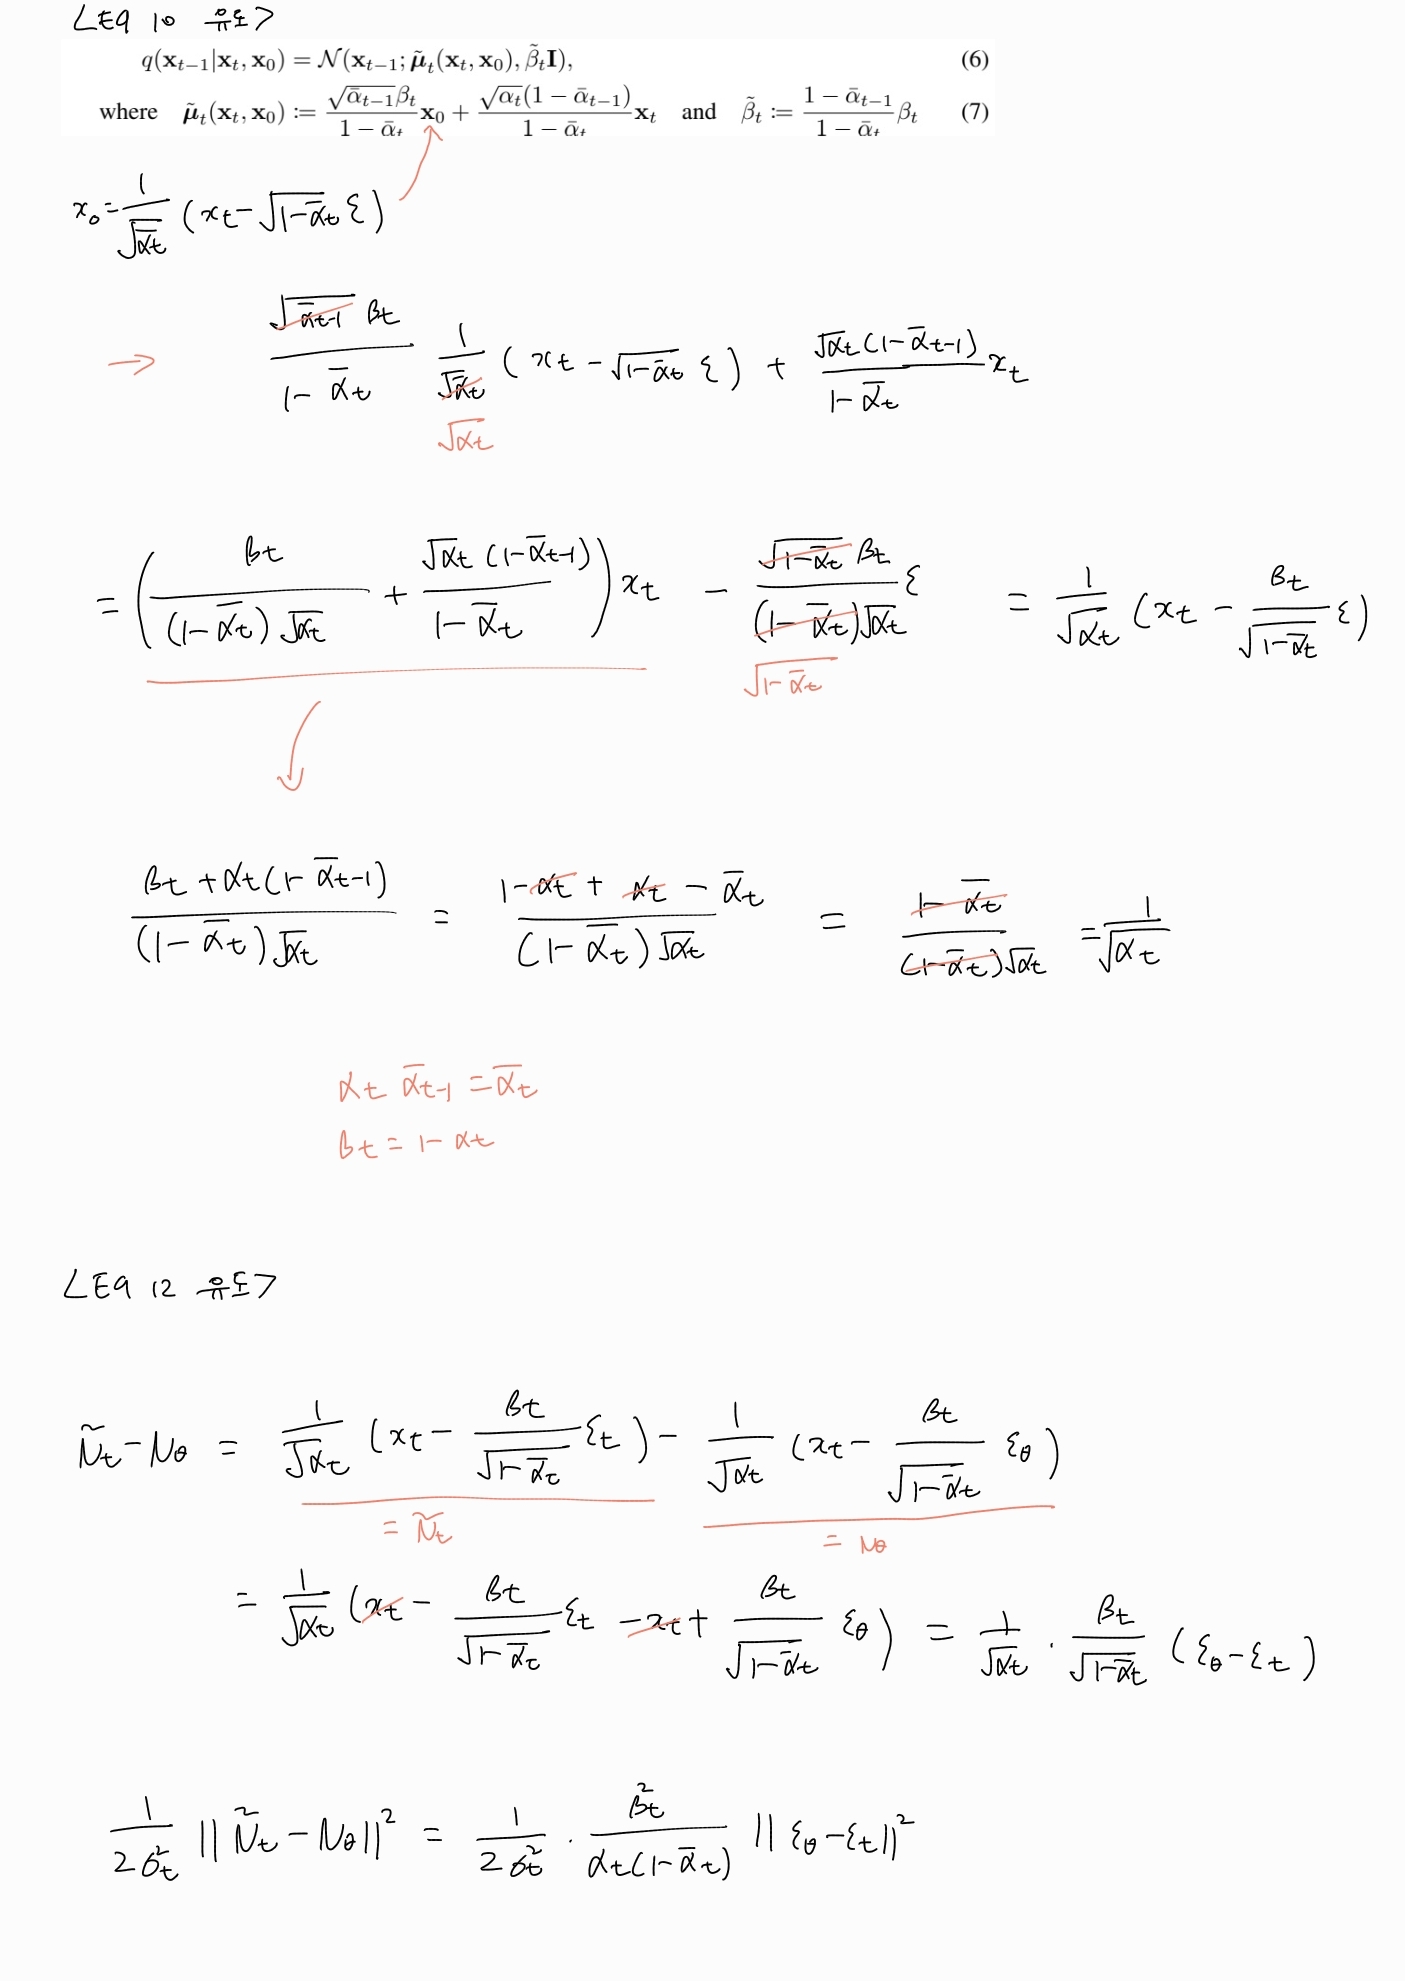 <EQ 10 유도>
q(x_{t−1}|x_t, x_0) = N(x_{t−1}; μ̃_t(x_t, x_0), β̃_t I), (6)
where μ̃_t(x_t, x_0) := \frac{√ᾱ_{t−1} β_t}{1 − ᾱ_t} x_0 + \frac{√α_t (1 − ᾱ_{t−1})}{1 − ᾱ_t} x_t and β̃_t := \frac{1 − ᾱ_{t−1}}{1 − ᾱ_t} β_t (7)
x_0 = \frac{1}{√ᾱ_t} (x_t − √{1−ᾱ_t} ε)
→ \frac{√ᾱ_{t-1} β_t}{1 − ᾱ_t} \frac{1}{√ᾱ_t} (x_t − √{1−ᾱ_t} ε) + \frac{√α_t (1−ᾱ_{t-1})}{1−ᾱ_t} x_t
√α_t
= (\frac{β_t}{(1−ᾱ_t) √α_t} + \frac{√α_t (1−ᾱ_{t-1})}{1−ᾱ_t}) x_t − \frac{√{1−ᾱ_t} β_t}{(1−ᾱ_t) √α_t} ε = \frac{1}{√α_t} (x_t − \frac{β_t}{√{1−ᾱ_t}} ε)
√{1−ᾱ_t}
\frac{β_t + α_t (1−ᾱ_{t-1})}{(1−ᾱ_t) √α_t} = \frac{1−α_t + α_t − ᾱ_t}{(1−ᾱ_t) √α_t} = \frac{1−ᾱ_t}{(1−ᾱ_t) √α_t} = \frac{1}{√α_t}
α_t ᾱ_{t-1} = ᾱ_t
β_t = 1−α_t
<EQ 12 유도>
μ̃_t − μ_θ = \frac{1}{√α_t} (x_t − \frac{β_t}{√{1−ᾱ_t}} ε_t) − \frac{1}{√α_t} (x_t − \frac{β_t}{√{1−ᾱ_t}} ε_θ)
= μ̃_t = μ_θ
= \frac{1}{√α_t} (x_t − \frac{β_t}{√{1−ᾱ_t}} ε_t − x_t + \frac{β_t}{√{1−ᾱ_t}} ε_θ) = \frac{1}{√α_t} · \frac{β_t}{√{1−ᾱ_t}} (ε_θ − ε_t)
\frac{1}{2σ_t^2} ||μ̃_t − μ_θ||^2 = \frac{1}{2σ_t^2} · \frac{β_t^2}{α_t (1−ᾱ_t)} ||ε_θ − ε_t||^2